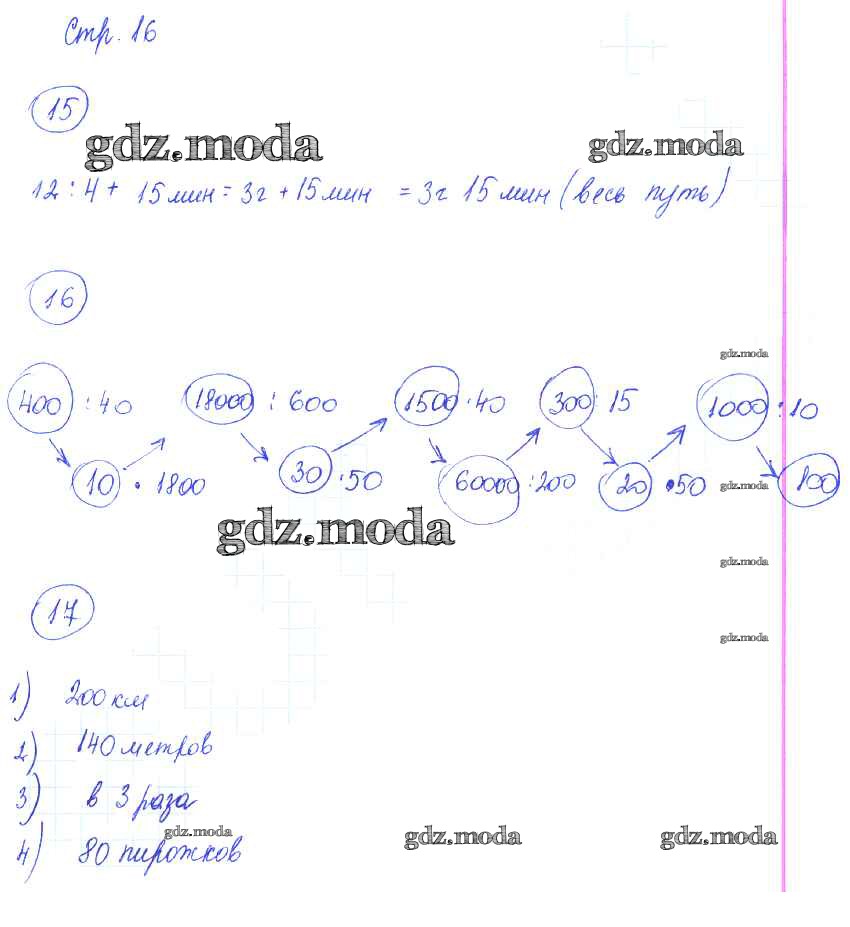 Стр. 16
15
gdz.moda gdz.moda
12 : 4 + 15 мин = 3г + 15 мин = 3г 15 мин (весь путь)
16
gdz.moda
400 : 40 18000 : 600 1500 · 40 300 : 15 1000 : 10
10 · 1800 30 · 50 60000 : 200 20 · 50 gdz.moda 100
gdz.moda
gdz.moda
17
gdz.moda
1) 200 км
2) 140 метров
3) в 3 раза
gdz.moda gdz.moda gdz.moda
4) 80 пирожков